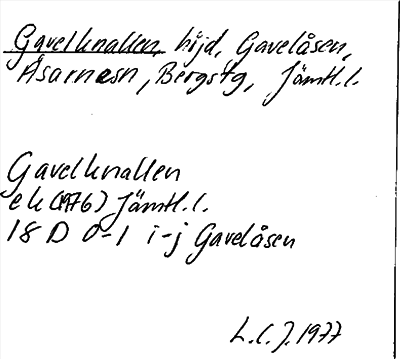 Gavelknallen, höjd, Gavelåsen,
Åsarne sn, Bergs tg, Jämtl. l.
Gavelknallen
ek (1976) Jämtl. l.
18 D 0-1 i-j Gavelåsen
L.C.J. 1977